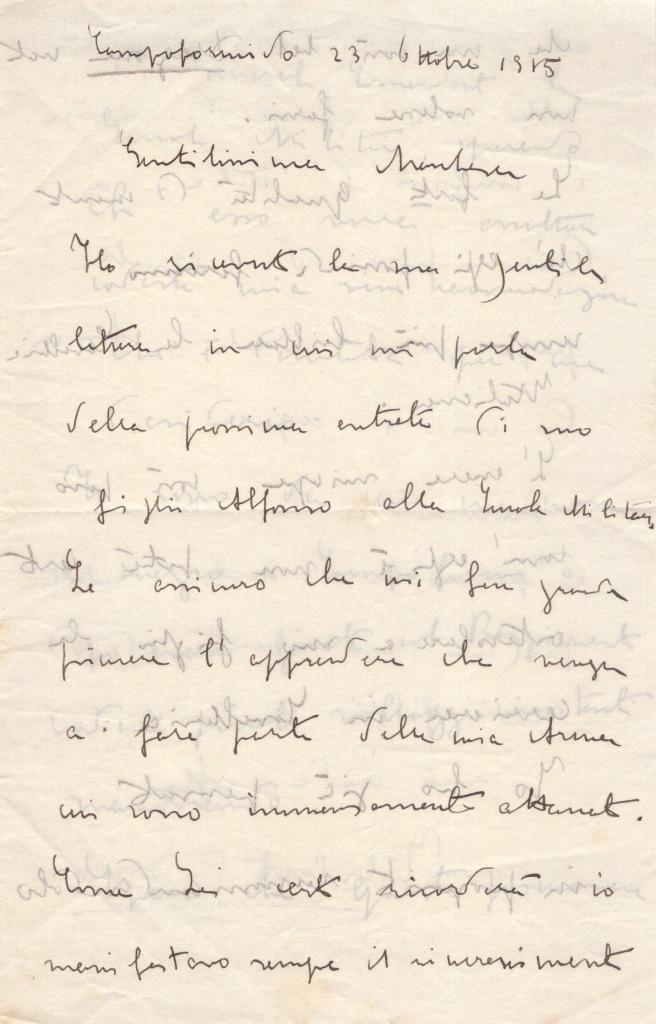 Campoformido 23 Ottobre 1915
Gentilissima Marchesa
Ho ricevuto la sua gentile
lettera in cui mi parla
della prossima entrata di suo
figlio Alfonso alla Scuola Militare
Le assicuro che mi fece grande
piacere l'apprendere che venga
a fare parte della mia Arma
cui sono immensamente attaccato.
Come Lei certo ricorderà io
manifestavo sempre il rincrescimento